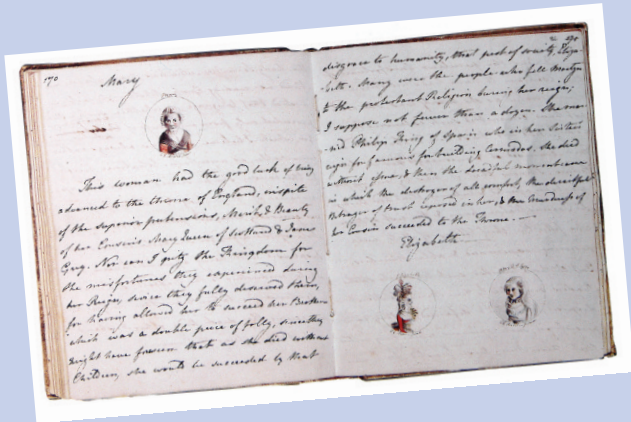 170
Mary
This woman had the good luck of being
advanced to the throne of England, inspite
of the superior pretensions, Merit, & Beauty
of her Cousins Mary Queen of Scotland & Jane
Grey. Nor can I pity the Kingdom for
the misfortunes they experienced during
her Reign, since they fully deserved them,
for having allowed her to succeed her Brother
which was a double peice of folly, since they
might have foreseen that as she died without
Children, she would be succeeded by that
disgrace to humanity, that pest of society, Eliza-
beth. Many were the people who fell Martyrs
to the protestant Religion during her reign;
I suppose not fewer than a dozen. She mar-
ried Philip King of Spain who in her Sister's
reign for famous for building Armadas. She died
without issue, & then the dreadful moment came
in which the destroyer of all comfort, the deceitful
Betrayer of trust reposed in her, & the Murderess of
her Cousin succeeded to the Throne.
Elizabeth